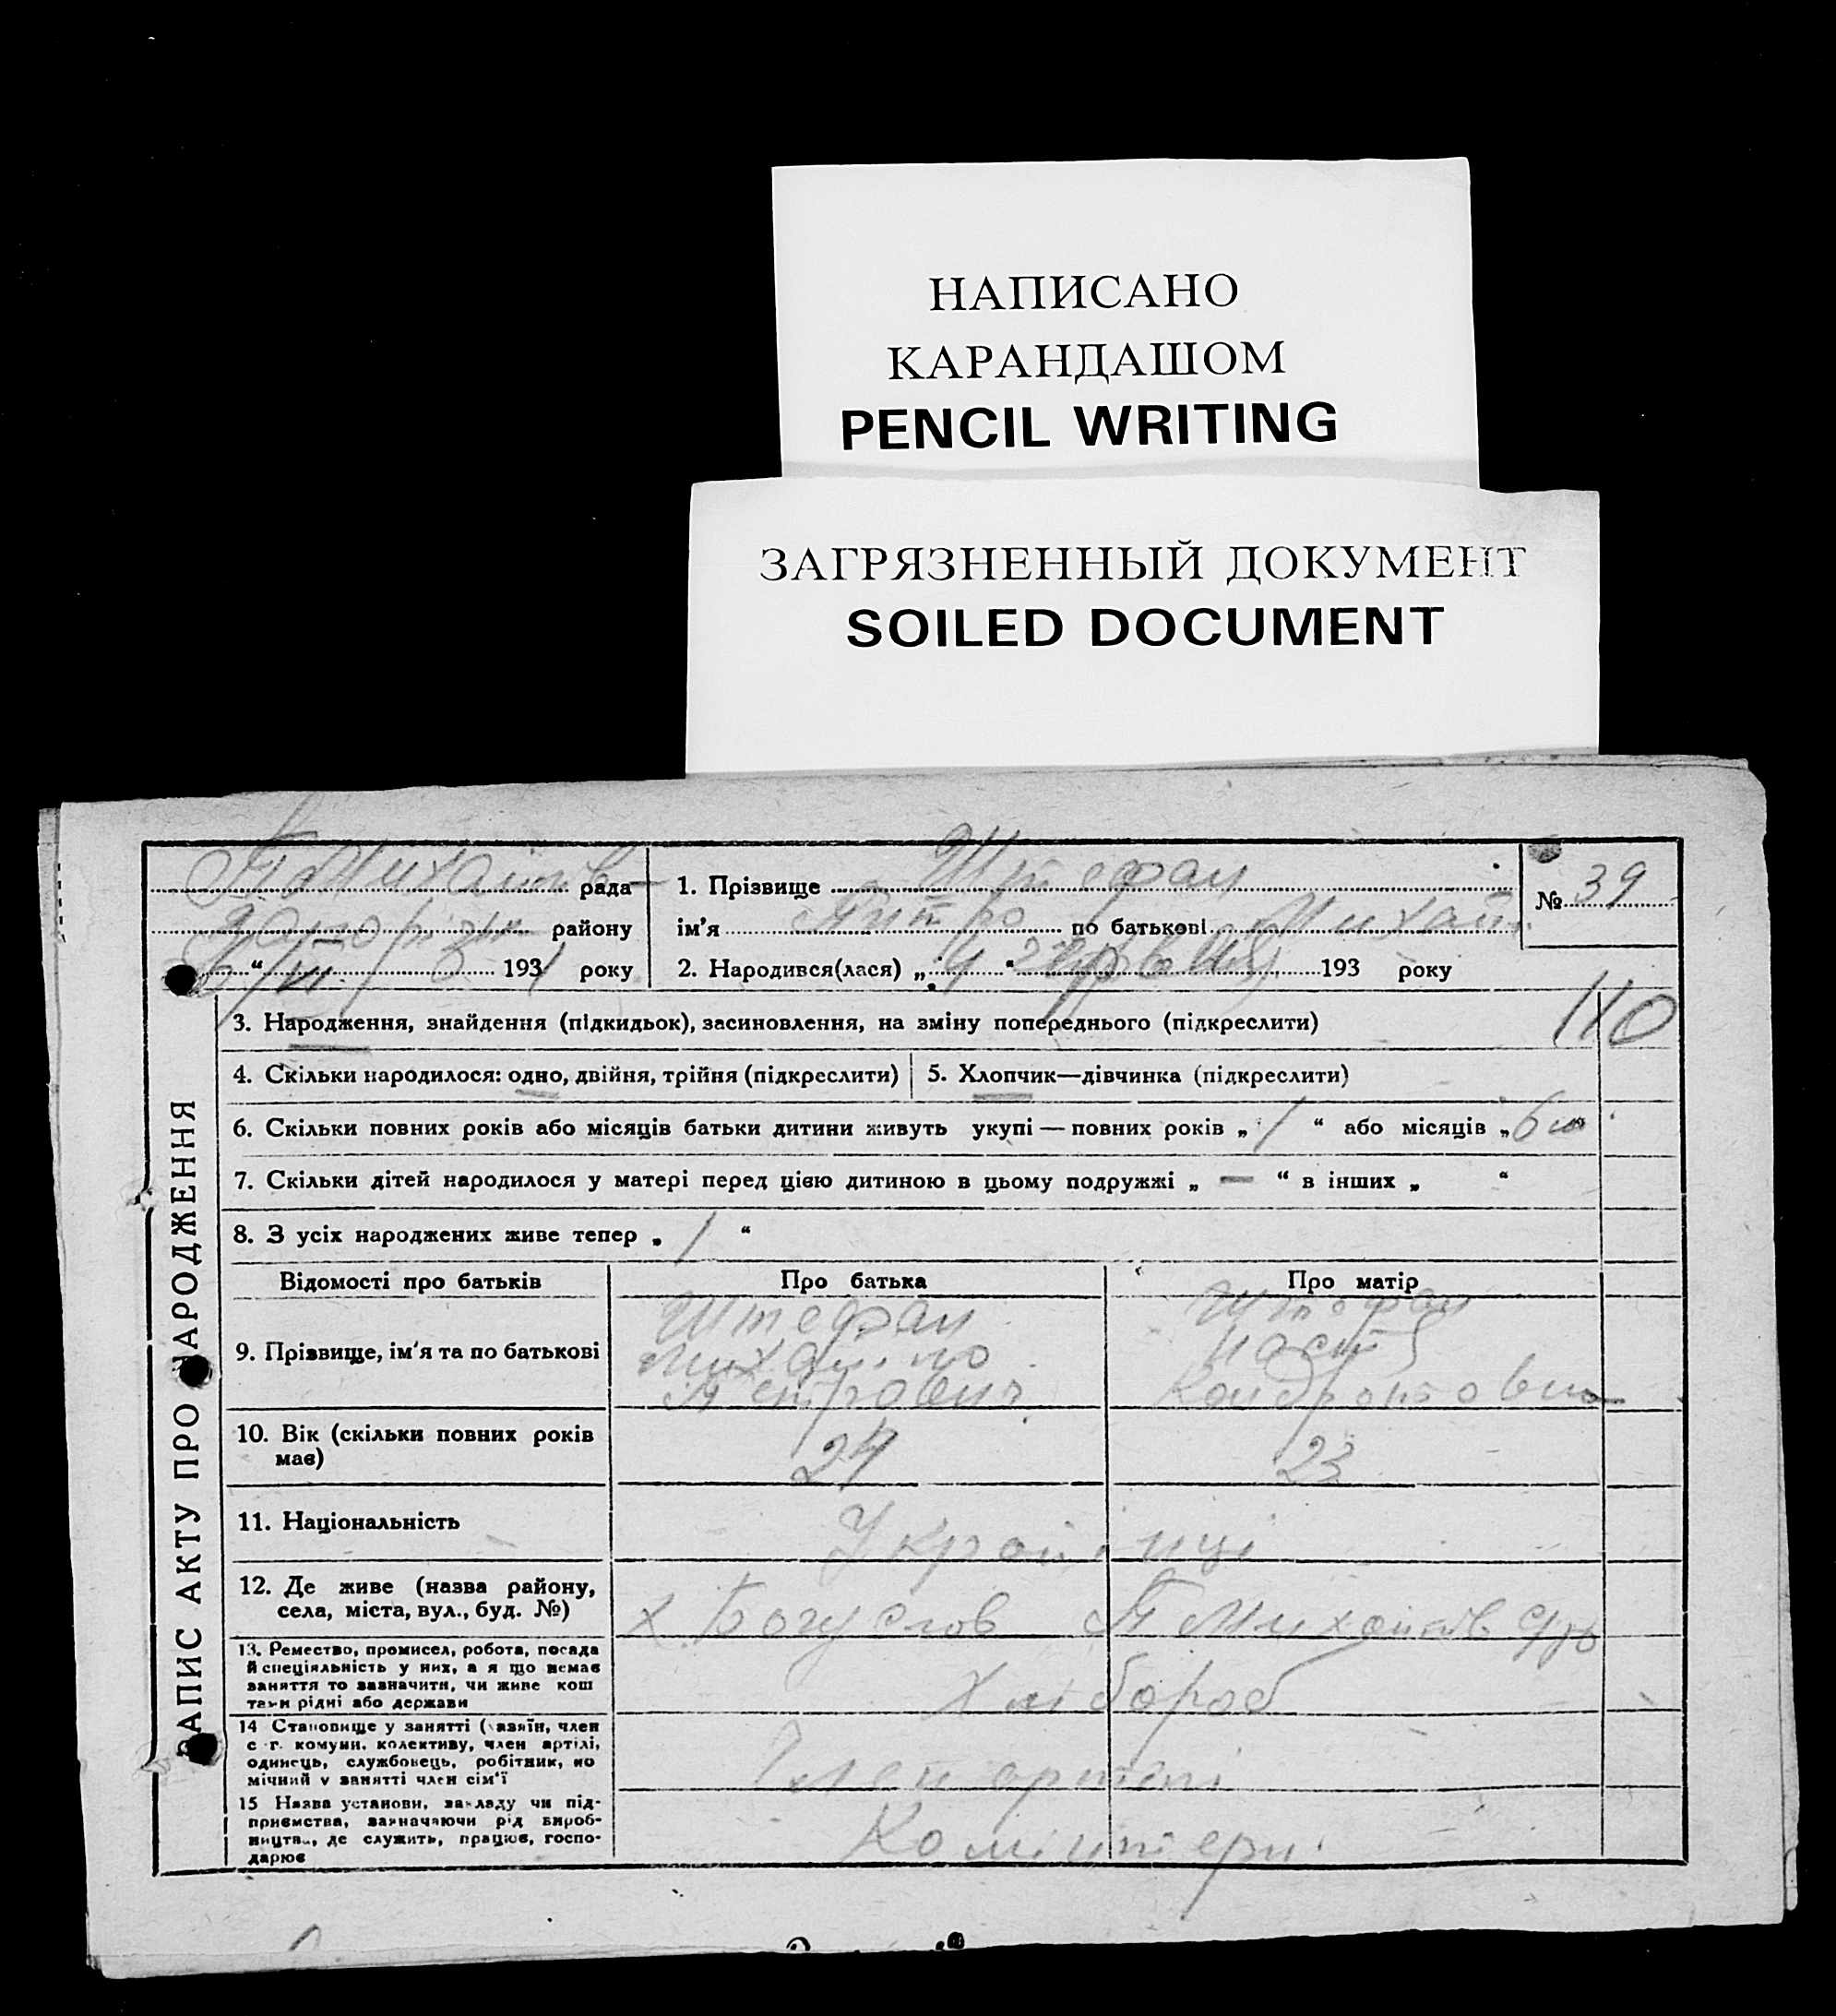 НАПИСАНО
КАРАНДАШОМ
PENCIL WRITING
ЗАГРЯЗНЕННЫЙ ДОКУМЕНТ
SOILED DOCUMENT
рада
району
1931 року
1. Прізвище Штефан
ім'я по батькові Михайл.
2. Народився(лася) „4“ 193 року
№ 39
110
ЗАПИС АКТУ ПРО НАРОДЖЕННЯ
3. Народження, знайдення (підкидьок), засиновлення, на зміну попереднього (підкреслити)
4. Скільки народилося: одно, двійня, трійня (підкреслити)
5. Хлопчик—дівчинка (підкреслити)
6. Скільки повних років або місяців батьки дитини живуть укупі — повних років „1“ або місяців „6 м“
7. Скільки дітей народилося у матері перед цією дитиною в цьому подружжі „—“ в інших „ “
8. З усіх народжених живе тепер „1“
Відомості про батьків
Про батька
Про матір
9. Прізвище, ім'я та по батькові
Штефан
Михайло
Петрович
Штефан
Настя
10. Вік (скільки повних років має)
24
23
11. Національність
Українці
12. Де живе (назва району,
села, міста, вул., буд. №)
х. Богуслов
13. Ремество, промисел, робота, посада
й спеціяльність у них, а я що немає
заняття то зазначити, чи живе кош
тами рідні або держави
Хлібороб
14 Становище у занятті (хазяїн, член
с.-г. комуни, колективу, член артілі,
одинець, службовець, робітник, по
мічний у занятті член сім'ї
Член артілі
15 Назва установи, закладу чи під-
приємства, зазначаючи рід вироб-
ництва, де служить, працює, госпо-
дарює
Комінтерн